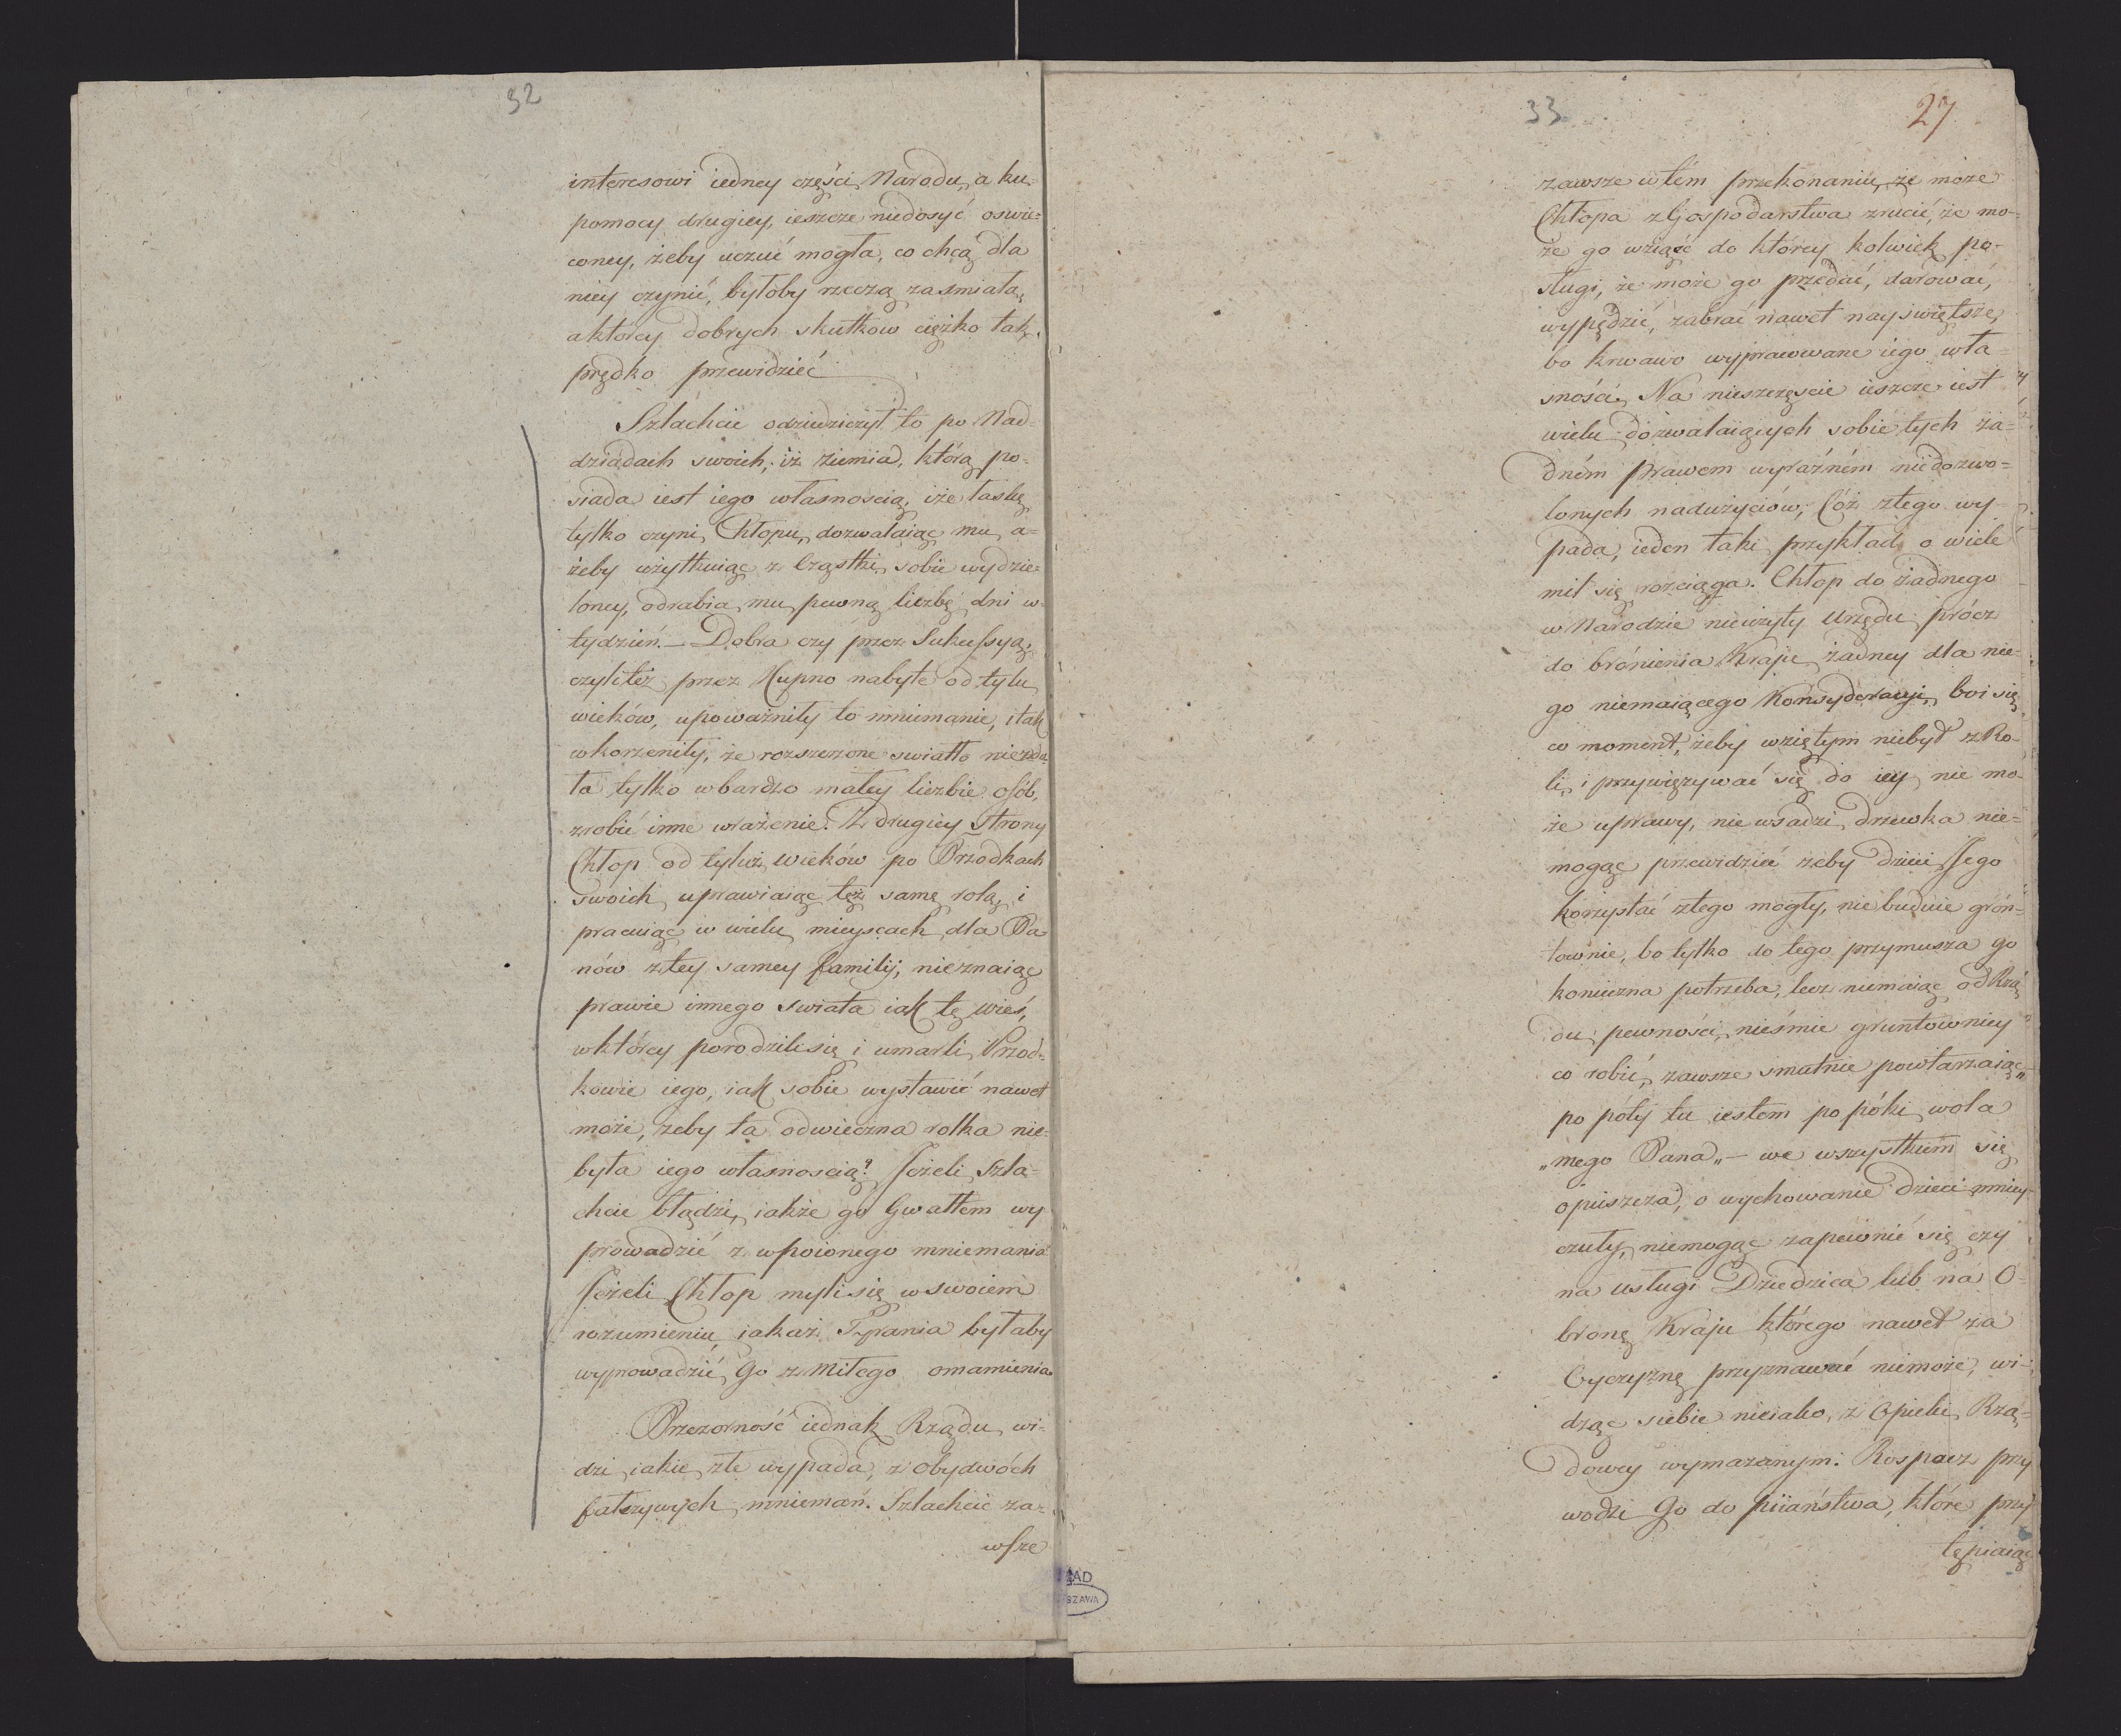 32
interesowi iedney części Narodu, a ku
pomocy drugiey, ieszcze niedosyć oswie=
coney, żeby uczuć mogła, co chcą dla
niey czynić, byłoby rzeczą zasmiałą,
aktórey dobrych skutkow ciężko tak
prędko przewidzieć
Szlachcic odziedziczył to po Nad=
dziadach swoich, iż ziemia, którą po=
siada iest iego własnoscią, iże łaskę
tylko czyni Chłopu, dozwalaiąc mu, a=
żeby użytkuiąc z Cząstki sobie wydzie=
loney, odrabia mu pewną liczbę dni w
tydzień. — Dobra czy przez Sukcessyą,
czyli też przez Kupno nabyte od tylu
wieków, upoważniły to mniemanie, i tak
wkorzeniły, że rozszerzone swiatło niezda=
ła tylko w bardzo małey liczbie osób,
zrobić inne wrażenie. Z drugiey strony
Chłop od tyluż wieków po Przodkach
swoich uprawiaiąc też samę rolą, i
pracuiąc w wielu mieyscach dla Pa
nów ztey samey familij, nieznaiąc
prawie innego swiata iak tę wieś,
wktórey porodzili się i umarli Przod=
kowie iego, iak sobie wystawić nawet
może, żeby ta odwieczna rolka nie=
była iego własnoscią? Jeżeli Szla=
chcic błądzi, iakże go Gwałtem wy
prowadzić z wpoionego mniemania
Jeżeli Chłop myli się w swoiem
rozumieniu, iakaż Tyrania byłaby
wyprowadzić Go z miłego omamienia.
Przezorność iednak Rządu, wi=
dzi iakie złe wypada, z obydwóch
fałszywych mniemań. Szlachcic za=
wsze
33
27
zawsze w tém przekonaniu, że może
Chłopa z Gospodarstwa zrucić, że mo=
że go wziąść do którey kolwiek po=
sługi, że może go przedać, darować,
wypędzić, zabrać nawet nayswiętszę,
bo krwawo wypracowane iego wła=
sności. Na nieszczęscie ieszcze iest
wielu dozwalaiących sobie tych ża=
dném prawem wyraźném niedozwo=
lonych nadużyciów; Cóż ztego wy
pada, ieden taki przykład o wiele
mil się rozciąga. Chłop do żadnego
w Narodzie nieużyty Urzędu prócz
do brónienia Kraju żadney dla nie=
go niemaiącego Konsyderacyi, boi się
co moment, żeby wziętym niebył z Ro=
li, i przywięzywać się do iey nie mo=
że uprawy, nie wsadzi drzewka nie=
mogąc przewidzieć żeby dzieci Jego
korzystać ztego mogły, nie buduie grón=
townie, bo tylko do tego przymusza go
konieczna potrzeba, lecz niemaiąc od Rzą
du pewności, nieśmie gruntowniey
co robić, zawsze smutnie powtarzaiąc„
po póty tu iestem po póki wola
„mego Pana„ — we wszystkiem się
opuszcza, o wychowanie dzieci mniey=
czuły, niemogąc zapewnić się czy
na usługi Dziedzica lub na O=
bronę Kraju którego nawet za
Oyczyznę przyznawać niemoże, wi=
dząc siebie nieiako, z Opieki Rzą=
dowey wymazanym. Rospacz przy
wodzi Go do piiaństwa, które przy
tępiaiąc